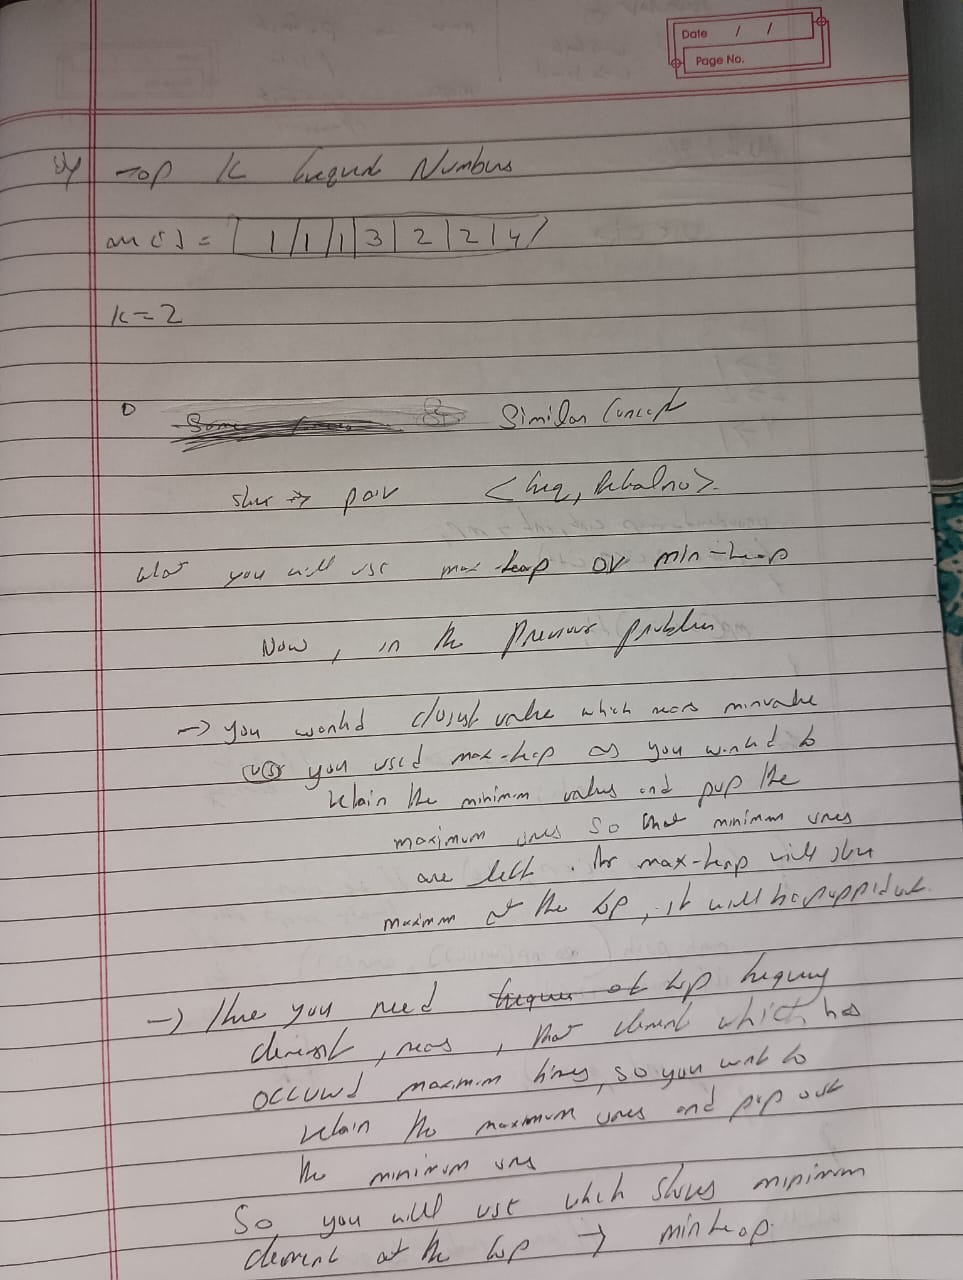 Date / /
Page No.
Top K frequent Numbers
arr[] = [ 1 | 1 | 1 | 3 | 2 | 2 | 4 ]
K = 2
Similar Concept
store → pair <freq, >
What you will use max-heap or min-heap
Now, in the Previous problem
→ you wanted closest value which means minvalue
you used max-heap as you wanted to
retain the minimum values and pop the
maximum ones so that minimum ones
are left. the max-heap will store
maximum at the top, it will be popped out.
→ Here you need top frequency
element, means, that element which has
occurred maximum times, so you want to
retain the maximum ones and pop out
the minimum ones
So you will use which stores minimum
element at the top → minheap.